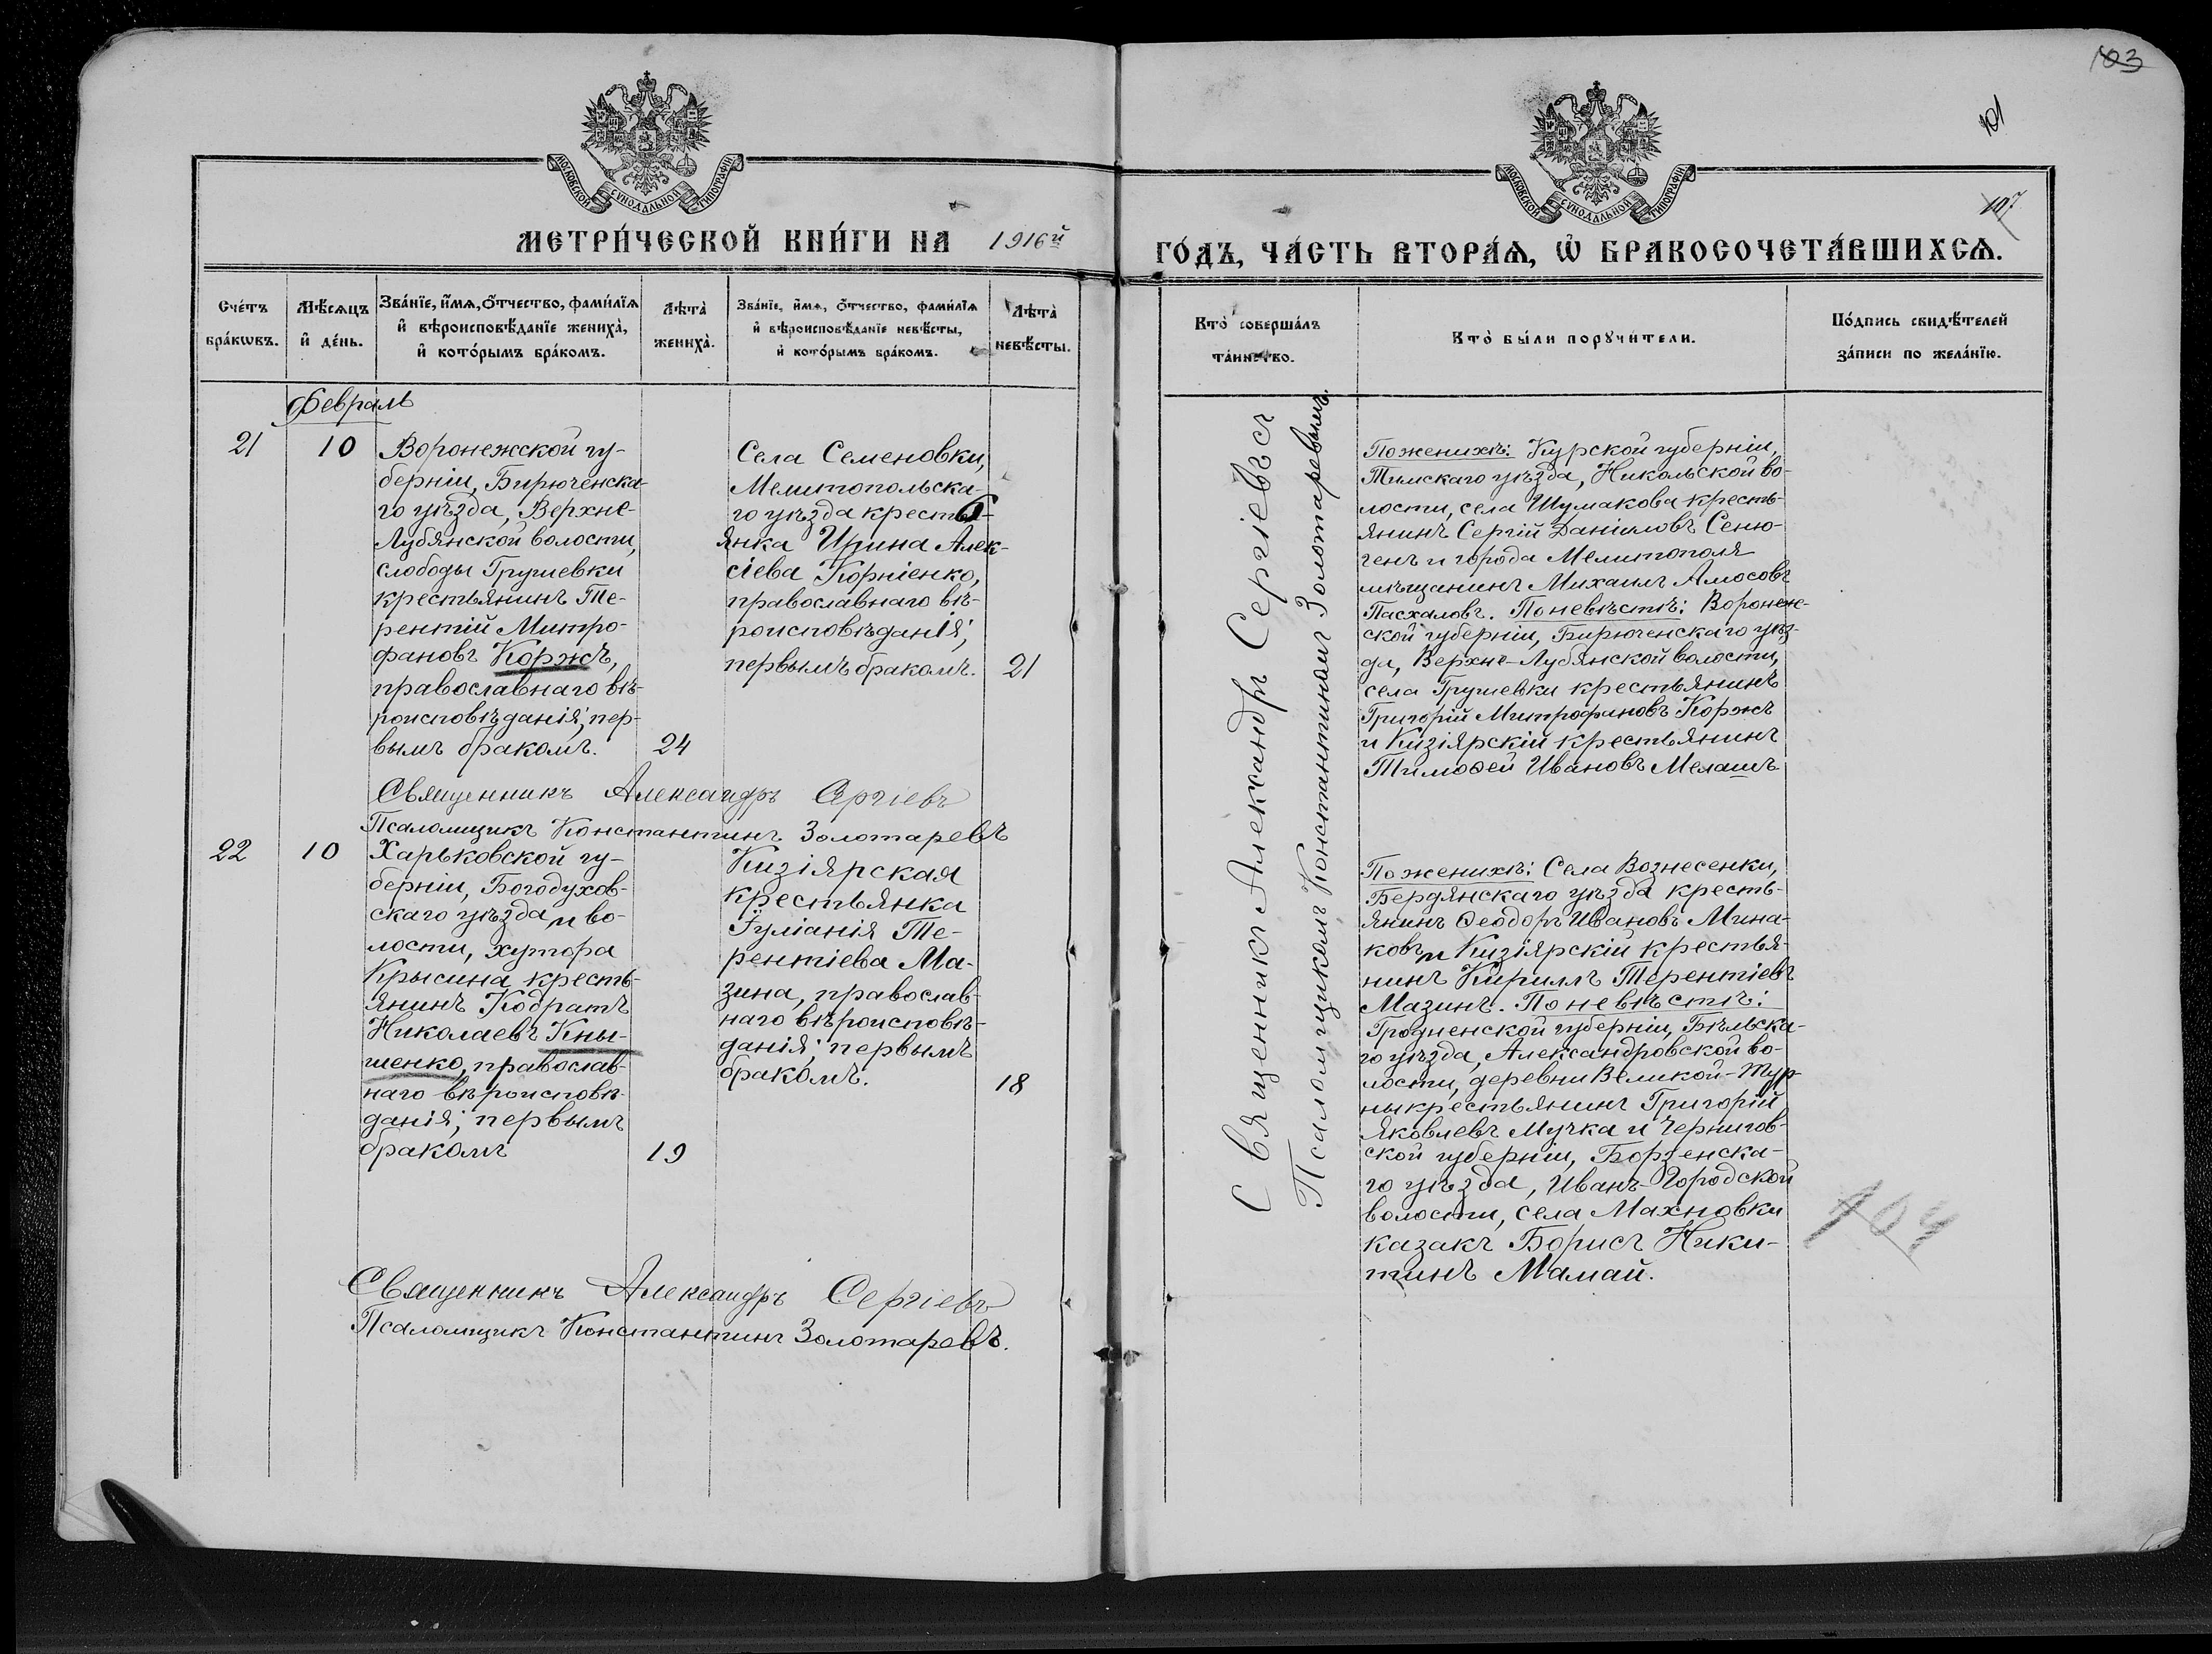 103
101
107
МОСКОВСКОЙ СѴНОДАЛЬНОЙ ТИПОГРАФІИ
МОСКОВСКОЙ СѴНОДАЛЬНОЙ ТИПОГРАФІИ
МЕТРИ́ЧЕСКОЙ КНИ́ГИ НА 1916й
ГО́ДЪ, ЧА́СТЬ ВТОРА́Ѧ, Ѿ БРАКОСОЧЕТА́ВШИХСѦ.
Сче́тъ бра́кѡвъ.
Мѣ́сѧцъ и де́нь.
Зва́нїе, и́мѧ, о́тчество, фами́лїѧ и вѣроисповѣ́данїе жениха̀, и кото́рымъ бра́комъ.
Лѣта̀ жениха̀.
Зва́нїе, и́мѧ, о́тчество, фами́лїѧ и вѣроисповѣ́данїе невѣ́сты, и кото́рымъ бра́комъ.
Лѣта̀ невѣ́сты.
Кто̀ соверша́лъ та́инство.
Кто̀ бы́ли порꙋчи́тели.
По́дпись свидѣ́телей за́писи по жела́нїю.
Февраль
21
10
Воронежской гу-
берніи, Бирюченска-
го уѣзда, Верхне-
Лубянской волости,
слободы Грушевки
крестьянинъ Те-
рентій Митро-
фановъ Коржъ,
православнаго вѣ-
роисповѣданія; пер-
вымъ бракомъ.
24
Села Семеновки,
Мелитопольска-
го уѣзда кресть-
янка Ирина Алек-
сіева Корніенко,
православнаго вѣ-
роисповѣданія;
первымъ бракомъ.
21
Священникъ Александръ Сергіевъ
Псаломщикъ Константинъ Золотаревъ
Священникъ Александръ Сергіевъ съ
Псаломщикомъ Константиномъ Золотаревымъ.
По женихѣ: Курской губерніи,
Тимскаго уѣзда, Никольской во-
лости, села Шумакова кресть-
янинъ Сергій Даніиловъ Сеню-
генъ и города Мелитополя
мѣщанинъ Михаилъ Амосовъ
Пасхаловъ. По невѣстѣ: Воронеж-
ской губерніи, Бирюченскаго уѣз-
да, Верхне-Лубянской волости,
села Грушевки крестьянинъ
Григорій Митрофановъ Коржъ
и Кизіярскій крестьянинъ
Тимоѳей Ивановъ Мелашъ
22
10
Харьковской гу-
берніи, Богодухов-
скаго уѣзда и во-
лости, хутора
Крысина кресть-
янинъ Кодратъ
Николаевъ Кны-
шенко, православ-
наго вѣроисповѣ-
данія; первымъ
бракомъ
19
Кизіярская
крестьянка
Іуліанія Те-
рентіева Ма-
зина, православ-
наго вѣроисповѣ-
данія; первымъ
бракомъ.
18
По женихѣ: Села Вознесенки,
Бердянскаго уѣзда кресть-
янинъ Ѳеодоръ Ивановъ Мина-
ковъ и Кизіярскій крестья-
нинъ Кириллъ Терентіевъ
Мазинъ. По невѣстѣ:
Гродненской губерніи, Бѣльска-
го уѣзда, Александровской во-
лости, деревни Великой-Тур-
ны крестьянинъ Григорій
Яковлевъ Мучка и Чернигов-
ской губерніи, Борзенска-
го уѣзда, Иванъ-Городской
волости, села Махновки
казакъ Борисъ Ники-
тинъ Мамай.
104
Священникъ Александръ Сергіевъ
Псаломщикъ Константинъ Золотаревъ.